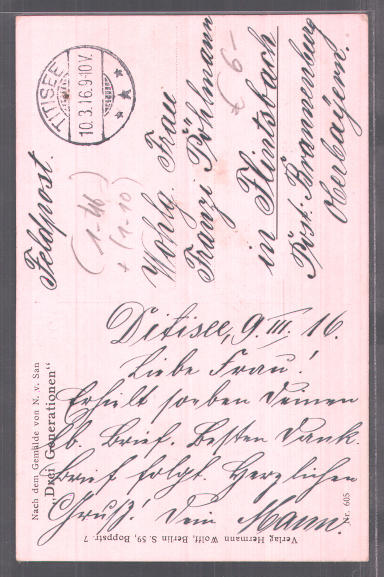 Feldpost.
TITISEE
10.3.16.9-10V.
(1-46)
+ (1-10)
€ 6-
Wohlg. Frau
Franzi Pöhlmann
in Flintsbach
Post: Brannenburg
Oberbayern.
Ditisee, 9. III. 16.
Liebe Frau!
Erhielt soeben Deinen
lb. Brief. Besten Dank.
Brief folgt. Herzlichen
Gruß! Dein Mann.
Nach dem Gemälde von N. v. San
„Drei Generationen“
Verlag Hermann Wolff, Berlin S. 59, Boppstr. 7
Nr. 605